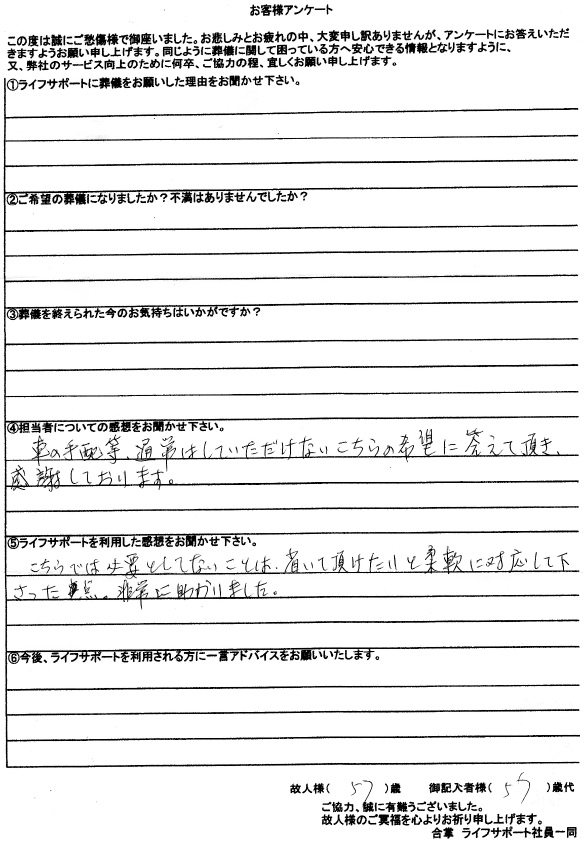 お客様アンケート
この度は誠にご愁傷様で御座いました。お悲しみとお疲れの中、大変申し訳ありませんが、アンケートにお答えいただ
きますようお願い申し上げます。同じように葬儀に関して困っている方へ安心できる情報となりますように、
又、弊社のサービス向上のために何卒、ご協力の程、宜しくお願い申し上げます。
①ライフサポートに葬儀をお願いした理由をお聞かせ下さい。
②ご希望の葬儀になりましたか？不満はありませんでしたか？
③葬儀を終えられた今のお気持ちはいかがですか？
④担当者についての感想をお聞かせ下さい。
車の手配等、通常はしていただけないこちらの希望に答えて頂き、
感謝しております。
⑤ライフサポートを利用した感想をお聞かせ下さい。
こちらでは必要としてないことは、省いて頂けたりと柔軟に対応して下
さった点。非常に助かりました。
⑥今後、ライフサポートを利用される方に一言アドバイスをお願いいたします。
故人様( 57 )歳 御記入者様( )歳代
ご協力、誠に有難うございました。
故人様のご冥福を心よりお祈り申し上げます。
合掌 ライフサポート社員一同